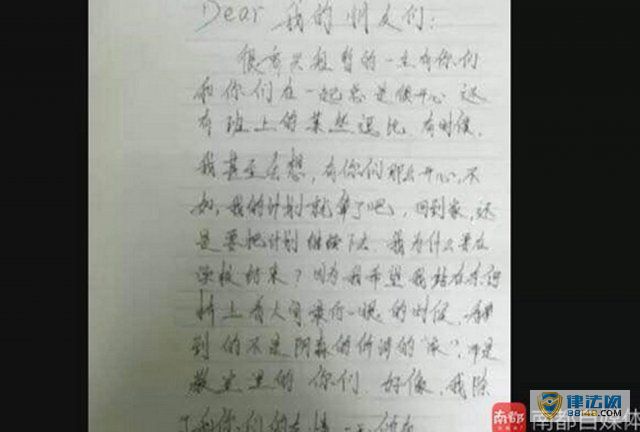 Dear 我的朋友们:
很高兴短暂的一生有你们
和你们在一起总是很开心 还
有班上的某些逗比. 有时候,
我甚至会想, 有你们那么开心, 不
如, 我的计划就算了吧, 回到家, 还
是要把计划继续下去. 我为什么要在
学校结束? 因为我希望我站在奈何
桥上有人问最后一晚的时候,
到的不是阴森的 的"家", 而是
教室里的你们. 好像, 我除
了和你们
南都
南都自媒体
律法网
88148.com